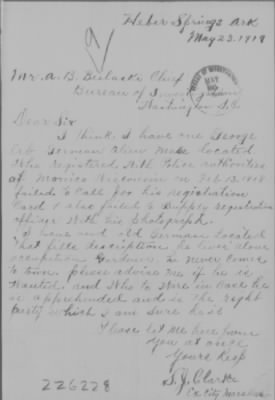 Heber Springs Ark
May 23. 1918
Mr. A. B. Bielaski Chief
Bureau of Investigation
Washington D.C.
Dear Sir
I think I have one George
German alien male located
Who Registered With Police authorities
of Wisconsin on Feb 13. 1918
failed to call for his registration
Card & also failed to Supply registration
officer With his Photograph.
I have one old German located
That fills description. he lives alone
occupation Gardner. he never comes
to town. please advise me if he is
Wanted. and Who to Wire in case he
is apprehended and is the right
party which I am sure he is
Please let me hear from
you at once
Yours Resp
S. J. Clarke
Ex City Marshal
226228